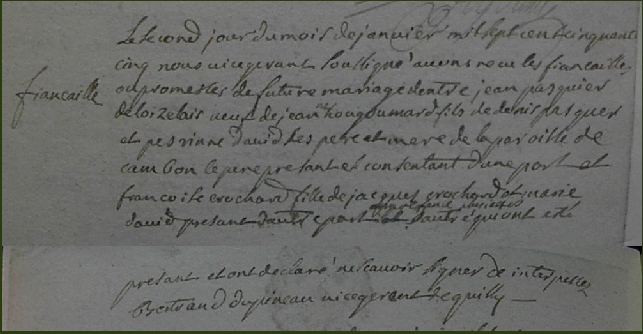 Le second jour du mois de janvier mil sept cent cinquante
cinq nous vicegerant soussigné avons receu les fiancailles
fiancaille
ou promesses de future mariage dentre jean pasquier
de loizelais veuf de jeanne hougoumard fils de denis pasquer
et perinne david ses pere et mere de la paroisse de
cambon le pere present et consentant dune part et
francoise crochard fille de jacques crochard et marie
david presant dautre part et dautres qui ont esté
presant et ont declaré ne scavoir signer de interpellez
Bertrand dupineau vicegerent de quilly